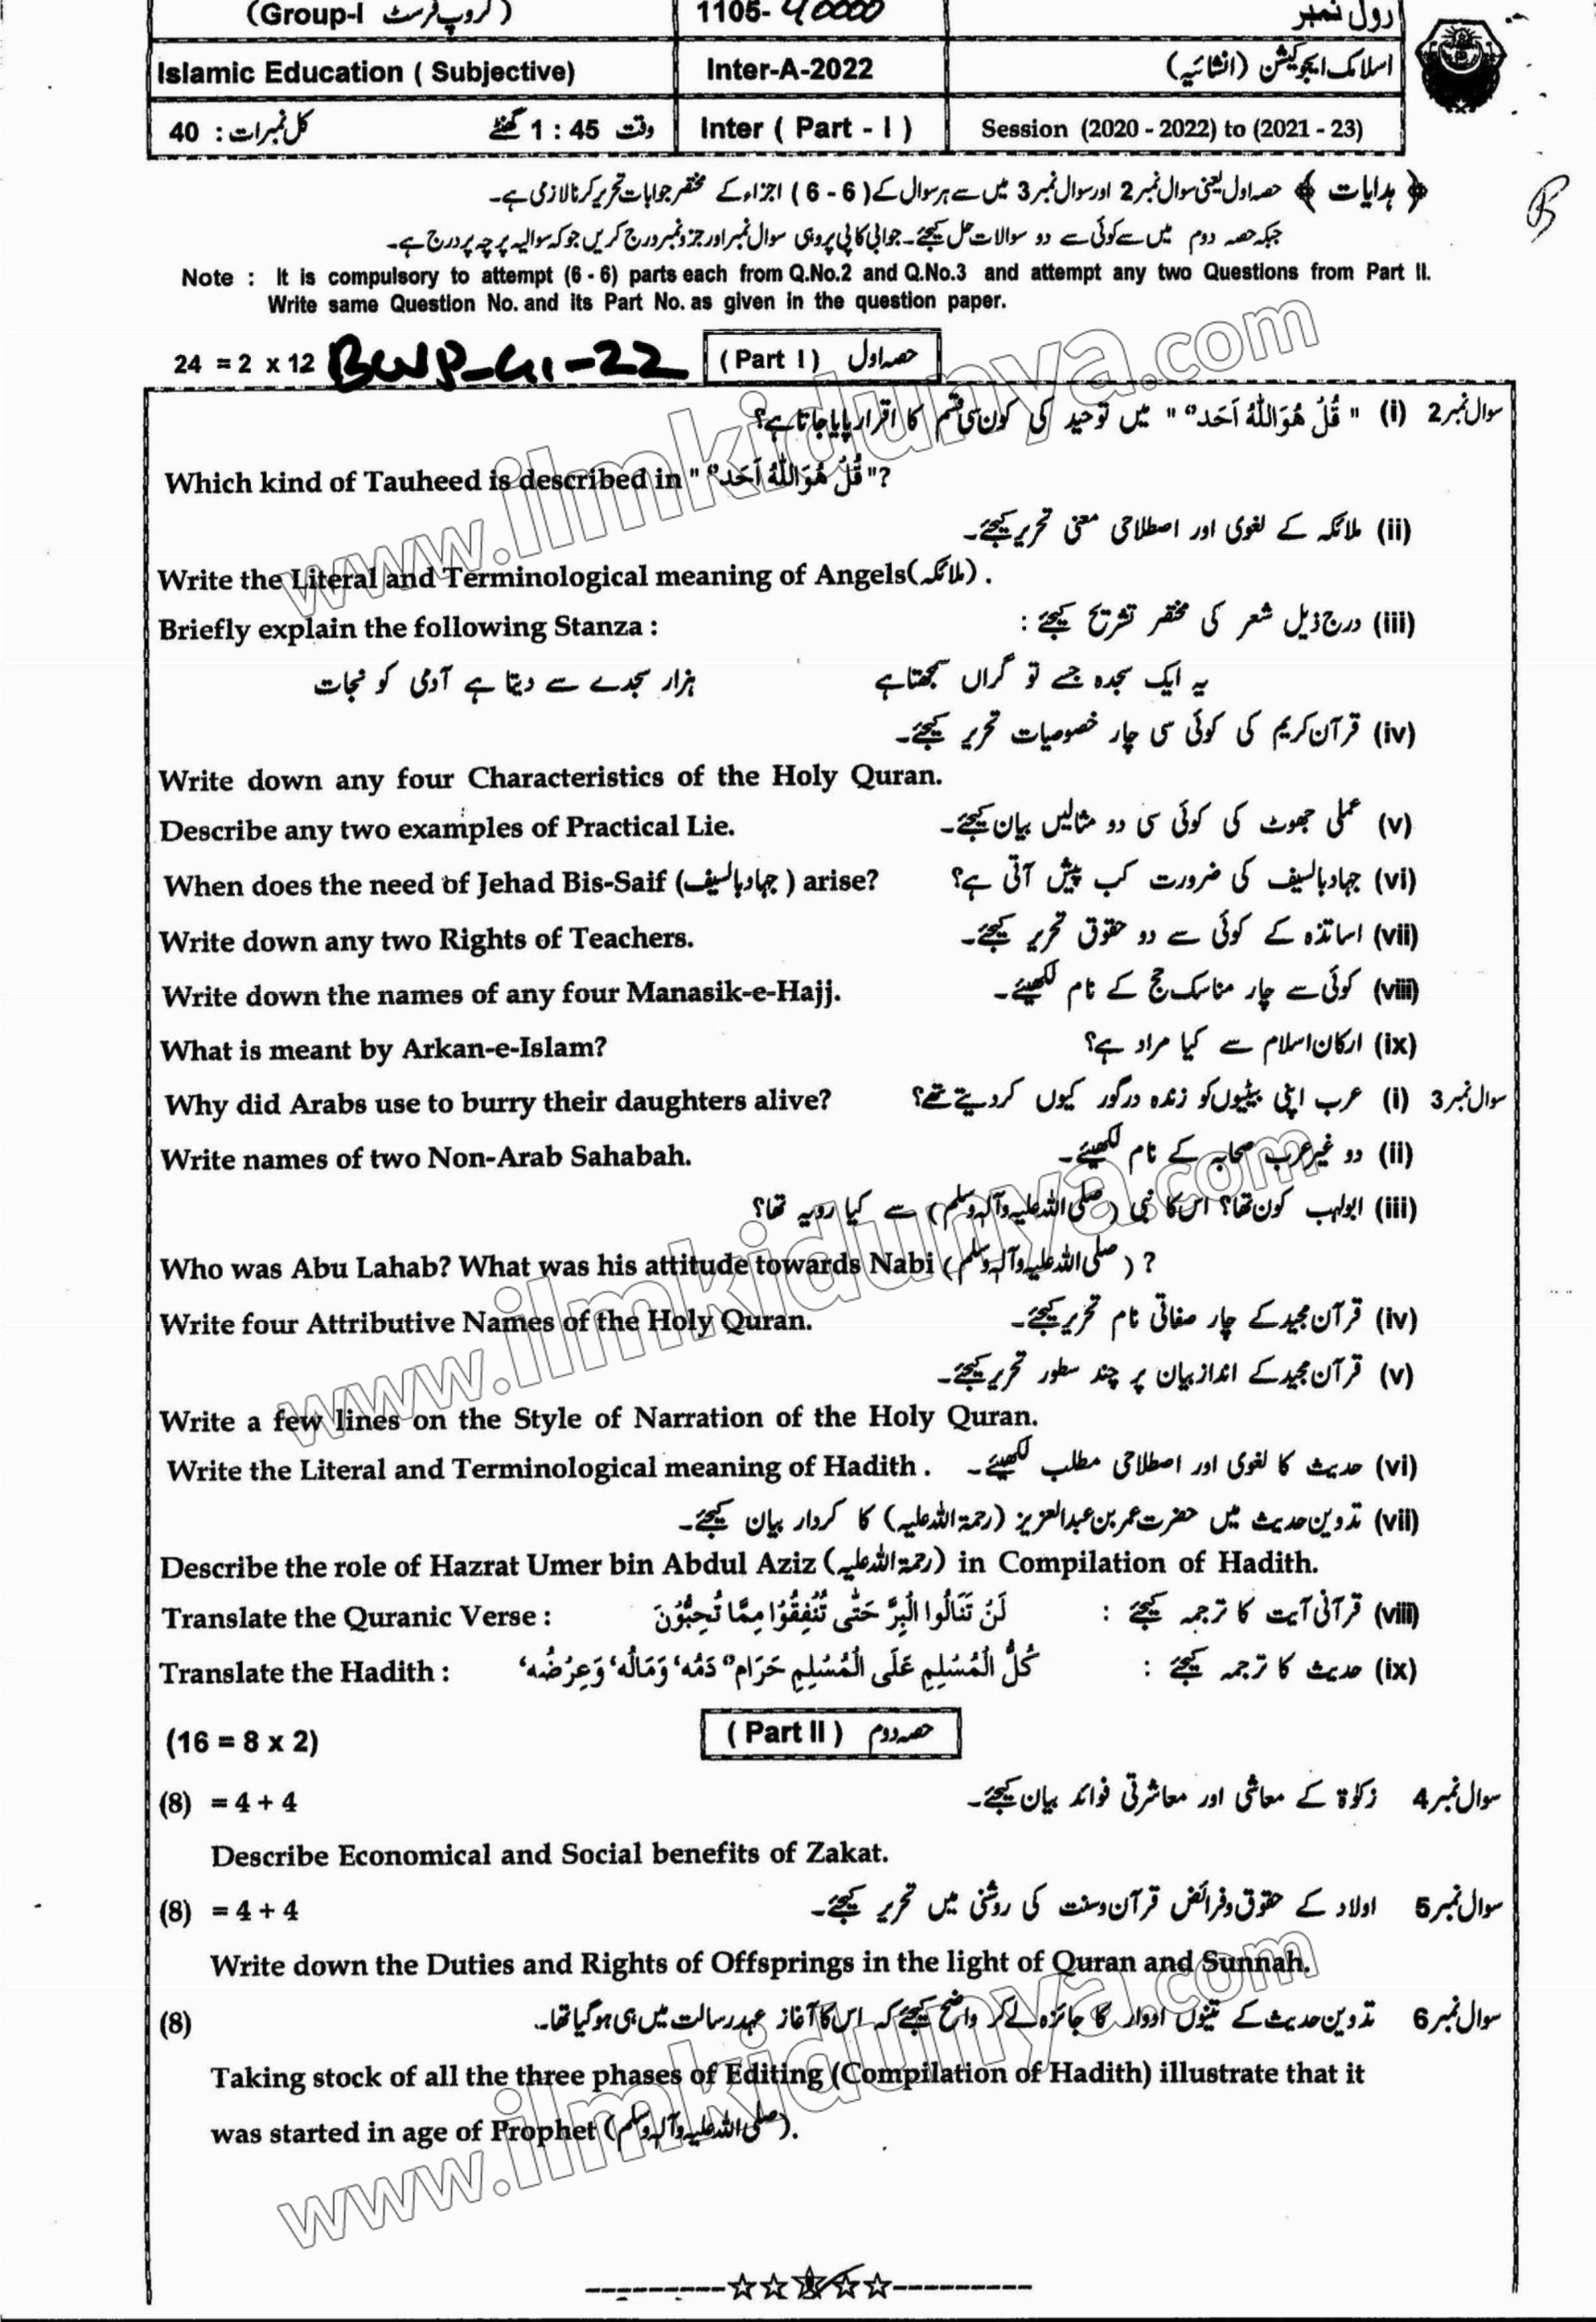 (Group-I گروپ فرسٹ) 1105- 40000 رول نمبر
Islamic Education ( Subjective) Inter-A-2022 اسلامک ایجوکیشن (انشائیہ)
کل نمبرات : 40 وقت 1 : 45 گھنٹے Inter ( Part - I ) Session (2020 - 2022) to (2021 - 23)
﴿ ہدایات ﴾ حصہ اول یعنی سوال نمبر 2 اور سوال نمبر 3 میں سے ہر سوال کے (6 - 6) اجزاء کے مختصر جوابات تحریر کرنا لازمی ہے۔
جبکہ حصہ دوم میں سے کوئی سے دو سوالات حل کیجئے۔ جوابی کاپی پر وہی سوال نمبر اور جزو نمبر درج کریں جو کہ سوالیہ پرچہ پر درج ہے۔
Note : It is compulsory to attempt (6 - 6) parts each from Q.No.2 and Q.No.3 and attempt any two Questions from Part II.
Write same Question No. and its Part No. as given in the question paper.
24 = 2 x 12 BWP-G1-22 ( Part I ) حصہ اول
سوال نمبر 2 (i) " قُلْ هُوَ اللّٰهُ اَحَد" " میں توحید کی کون سی قسم کا اقرار پایا جاتا ہے؟
Which kind of Tauheed is described in " قُلْ هُوَ اللّٰهُ اَحَد" "?
(ii) ملائکہ کے لغوی اور اصطلاحی معنی تحریر کیجئے۔
Write the Literal and Terminological meaning of Angels(ملائکہ) .
Briefly explain the following Stanza : (iii) درج ذیل شعر کی مختصر تشریح کیجئے :
یہ ایک سجدہ جسے تو گراں سمجھتا ہے ہزار سجدے سے دیتا ہے آدمی کو نجات
(iv) قرآن کریم کی کوئی سی چار خصوصیات تحریر کیجئے۔
Write down any four Characteristics of the Holy Quran.
Describe any two examples of Practical Lie. (v) عملی جھوٹ کی کوئی سی دو مثالیں بیان کیجئے۔
When does the need of Jehad Bis-Saif (جہاد بالسیف) arise? (vi) جہاد بالسیف کی ضرورت کب پیش آتی ہے؟
Write down any two Rights of Teachers. (vii) اساتذہ کے کوئی سے دو حقوق تحریر کیجئے۔
Write down the names of any four Manasik-e-Hajj. (viii) کوئی سے چار مناسک حج کے نام لکھیئے۔
What is meant by Arkan-e-Islam? (ix) ارکان اسلام سے کیا مراد ہے؟
Why did Arabs use to burry their daughters alive? سوال نمبر 3 (i) عرب اپنی بیٹیوں کو زندہ درگور کیوں کر دیتے تھے؟
Write names of two Non-Arab Sahabah. (ii) دو غیر عرب صحابہ کے نام لکھیئے۔
(iii) ابولہب کون تھا؟ اس کا نبی (صلی اللہ علیہ وآلہ وسلم) سے کیا رویہ تھا؟
Who was Abu Lahab? What was his attitude towards Nabi (صلی اللہ علیہ وآلہ وسلم) ?
Write four Attributive Names of the Holy Quran. (iv) قرآن مجید کے چار صفاتی نام تحریر کیجئے۔
(v) قرآن مجید کے انداز بیان پر چند سطور تحریر کیجئے۔
Write a few lines on the Style of Narration of the Holy Quran.
Write the Literal and Terminological meaning of Hadith . (vi) حدیث کا لغوی اور اصطلاحی مطلب لکھیئے۔
(vii) تدوین حدیث میں حضرت عمر بن عبدالعزیز (رحمۃ اللہ علیہ) کا کردار بیان کیجئے۔
Describe the role of Hazrat Umer bin Abdul Aziz (رحمۃ اللہ علیہ) in Compilation of Hadith.
Translate the Quranic Verse : لَنْ تَنَالُوا الْبِرَّ حَتّٰى تُنْفِقُوْا مِمَّا تُحِبُّوْنَ (viii) قرآنی آیت کا ترجمہ کیجئے :
Translate the Hadith : كُلُّ الْمُسْلِمِ عَلَى الْمُسْلِمِ حَرَام" دَمُه' وَمَالُه' وَعِرْضُه' (ix) حدیث کا ترجمہ کیجئے :
(16 = 8 x 2) ( Part II ) حصہ دوم
(8) = 4 + 4 سوال نمبر 4 زکوٰۃ کے معاشی اور معاشرتی فوائد بیان کیجئے۔
Describe Economical and Social benefits of Zakat.
(8) = 4 + 4 سوال نمبر 5 اولاد کے حقوق و فرائض قرآن و سنت کی روشنی میں تحریر کیجئے۔
Write down the Duties and Rights of Offsprings in the light of Quran and Sunnah.
(8) سوال نمبر 6 تدوین حدیث کے تینوں ادوار کا جائزہ لے کر واضح کیجئے کہ اس کا آغاز عہد رسالت میں ہی ہو گیا تھا۔
Taking stock of all the three phases of Editing (Compilation of Hadith) illustrate that it
was started in age of Prophet (صلی اللہ علیہ وآلہ وسلم).
www.ilmkidunya.com
www.ilmkidunya.com
www.ilmkidunya.com